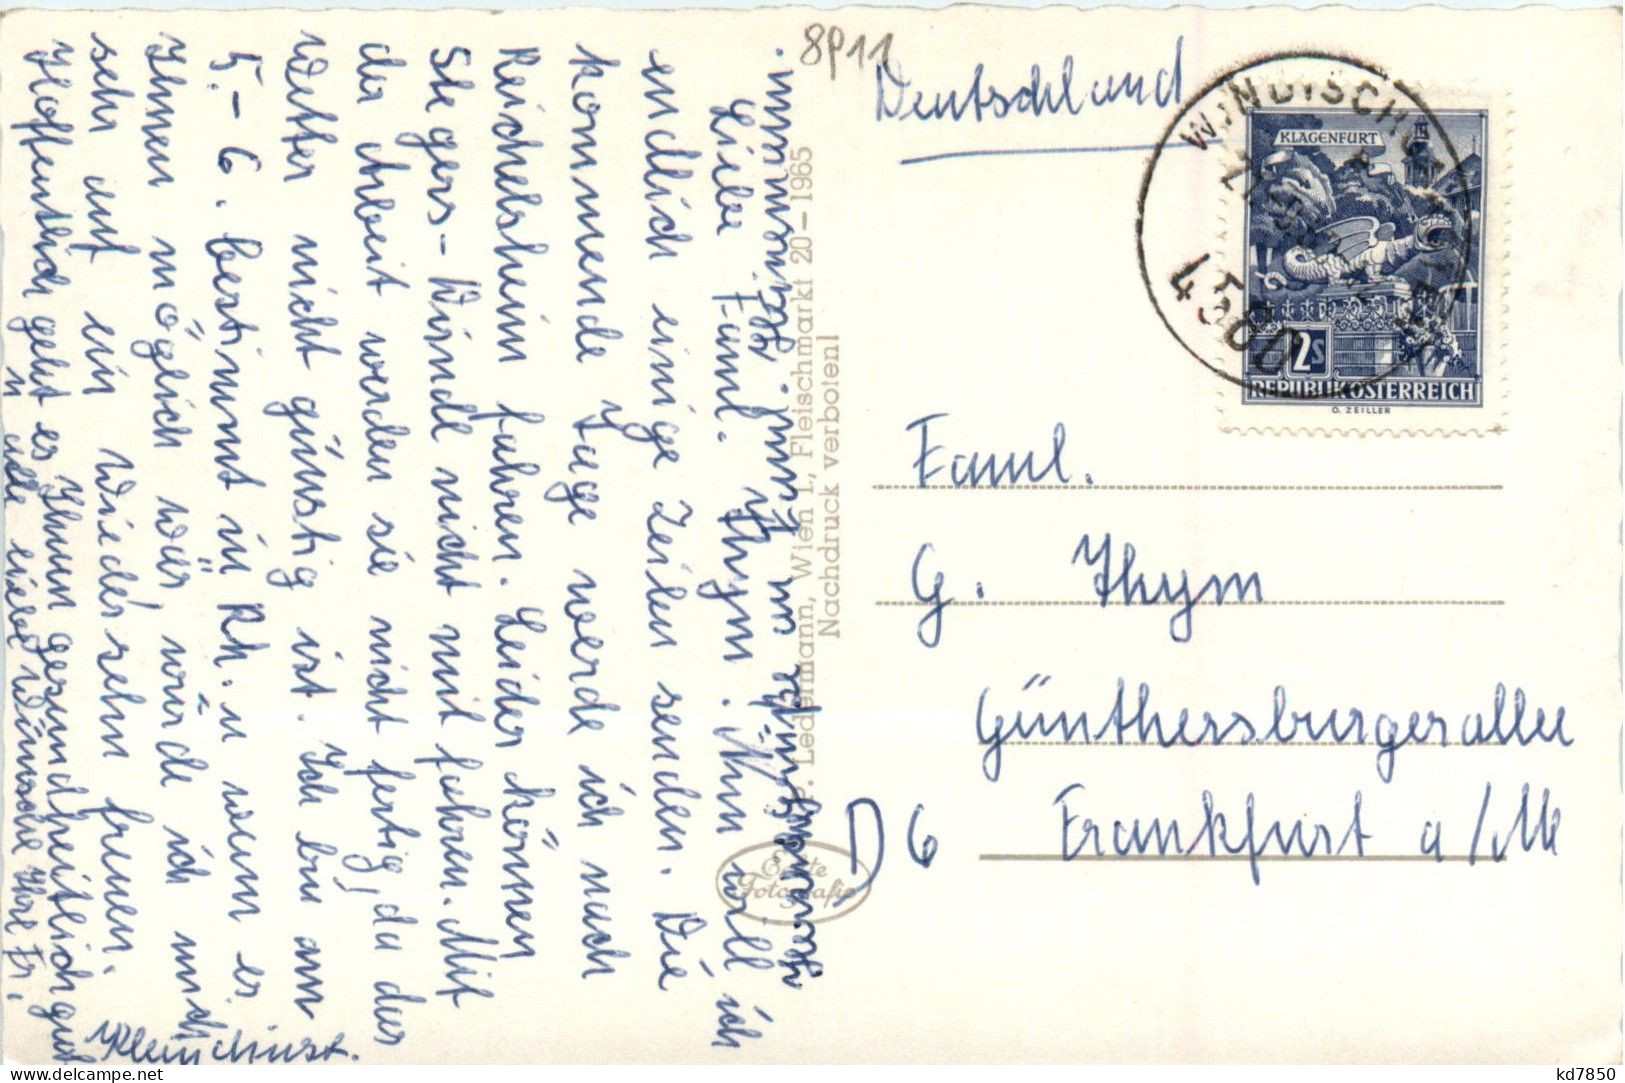 8911
Deutschland
WINDISCHGARSTEN
4580
KLAGENFURT
2S
REPUBLIK ÖSTERREICH
O. ZEILLER
Faml.
G. Thym
Günthersburgerallee
D 6 Frankfurt a/M
P. Ledermann, Wien I., Fleischmarkt 20-1965
Nachdruck verboten!
Echte
Fotografie
Liebe Faml. Thym. Nun will ich
endlich einige Zeilen senden. Die
kommende Tage werde ich nach
Reichelsheim fahren. Leider können
Stegers-Winde nicht mit fahren. Mit
der Arbeit werden sie nicht fertig, da das
Wetter nicht günstig ist. Ich bin am
5.-6. bestimmt in Rh. u wenn es
Ihnen möglich wär, würde ich mich
sehr auf ein Wiedersehn freuen.
Hoffentlich geht es Ihnen gesundheitlich gut
u alle liebe Wünsche Ihre Fr.
Kleinchust.
Herzliche Grüße u
kd7850